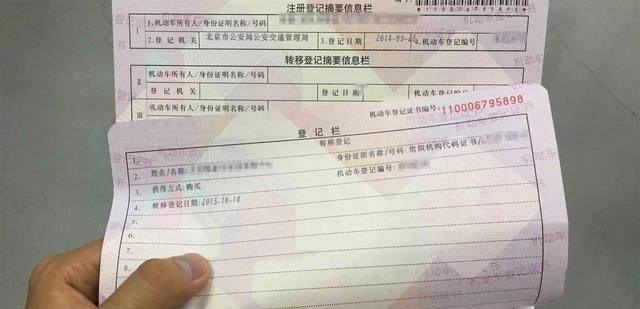 注册登记摘要信息栏
Ⅰ 1.机动车所有人/身份证明名称/号码
2.登记机关 北京市公安局公安交通管理局 3.登记日期 2014-09- 4.机动车登记编号
转移登记摘要信息栏
Ⅱ 机动车所有人/身份证明名称/号码
登记机关 登记日期 机动车登记编号
Ⅲ 机动车所有人/身份证明名称/号码
机动车登记证书编号: 110006795898
登记栏
1. 转移登记
2. 姓名/名称: 身份证明名称/号码: 组织机构代码证书/
3. 获得方式: 购买 机动车登记编号:
4. 转移登记日期: 2015-10-14
5.
6.
7.
8.